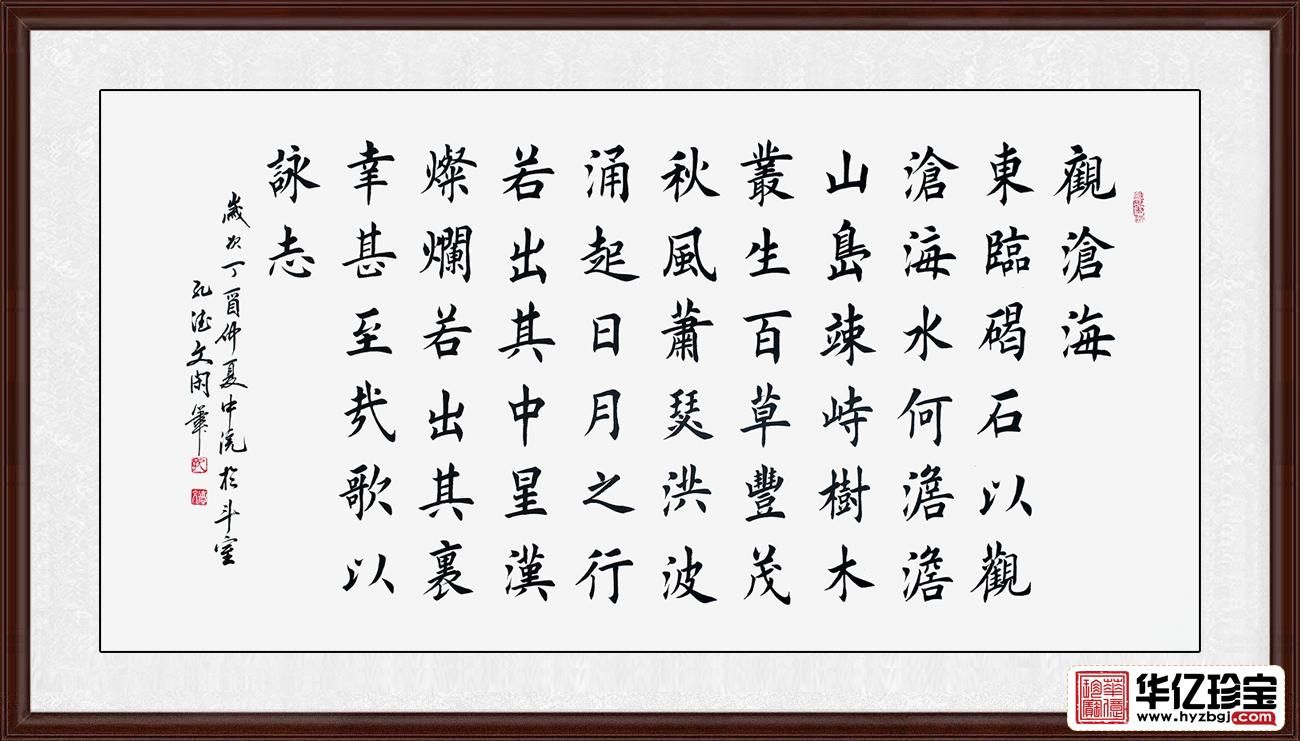 觀滄海
東臨碣石以觀
滄海水何澹澹
山島竦峙樹木
叢生百草豐茂
秋風蕭瑟洪波
涌起日月之行
若出其中星漢
燦爛若出其裏
幸甚至哉歌以
詠志
歲次丁酉仲夏中浣於斗室
孔德文閑筆
华亿珍宝
www.hyzbgj.com